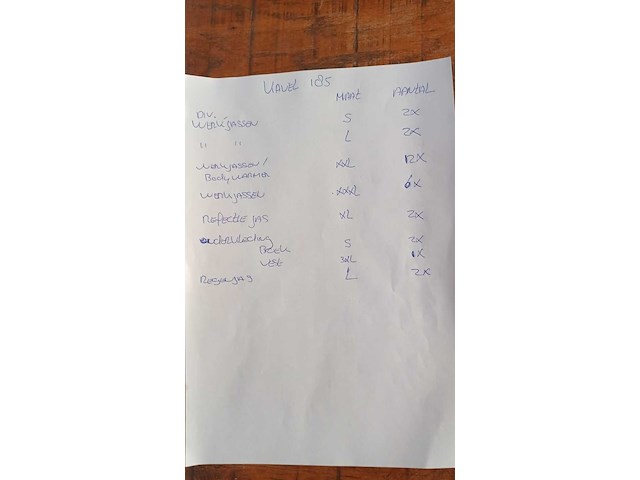 KAVEL 185
MAAT AANTAL
DIV.
WERKJASSEN S 2X
" " L 2X
WERKJASSEN / XXL 12X
BODYWARMER
WERKJASSEN XXXL 6X
REFECTIE JAS XL 2X
ONDERKLEDING
BROEK S 2X
3XL 1X
REGENJAS L 2X